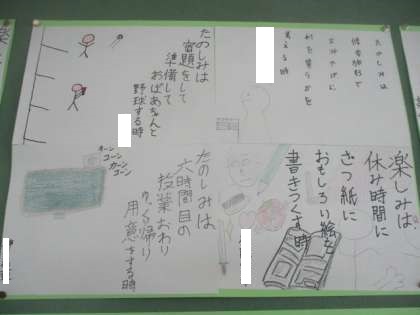 たのしみは
修学旅行で
何を買うかを
考える時
たのしみは
宿題をして
準備して
おばあちゃんと
野球する時
楽しみは
休み時間に
ざつ紙に
おもしろい絵を
書きつくす時
たのしみは
六時間目の
授業おわり
用意する時
キーン
コーン
カーン
コーン